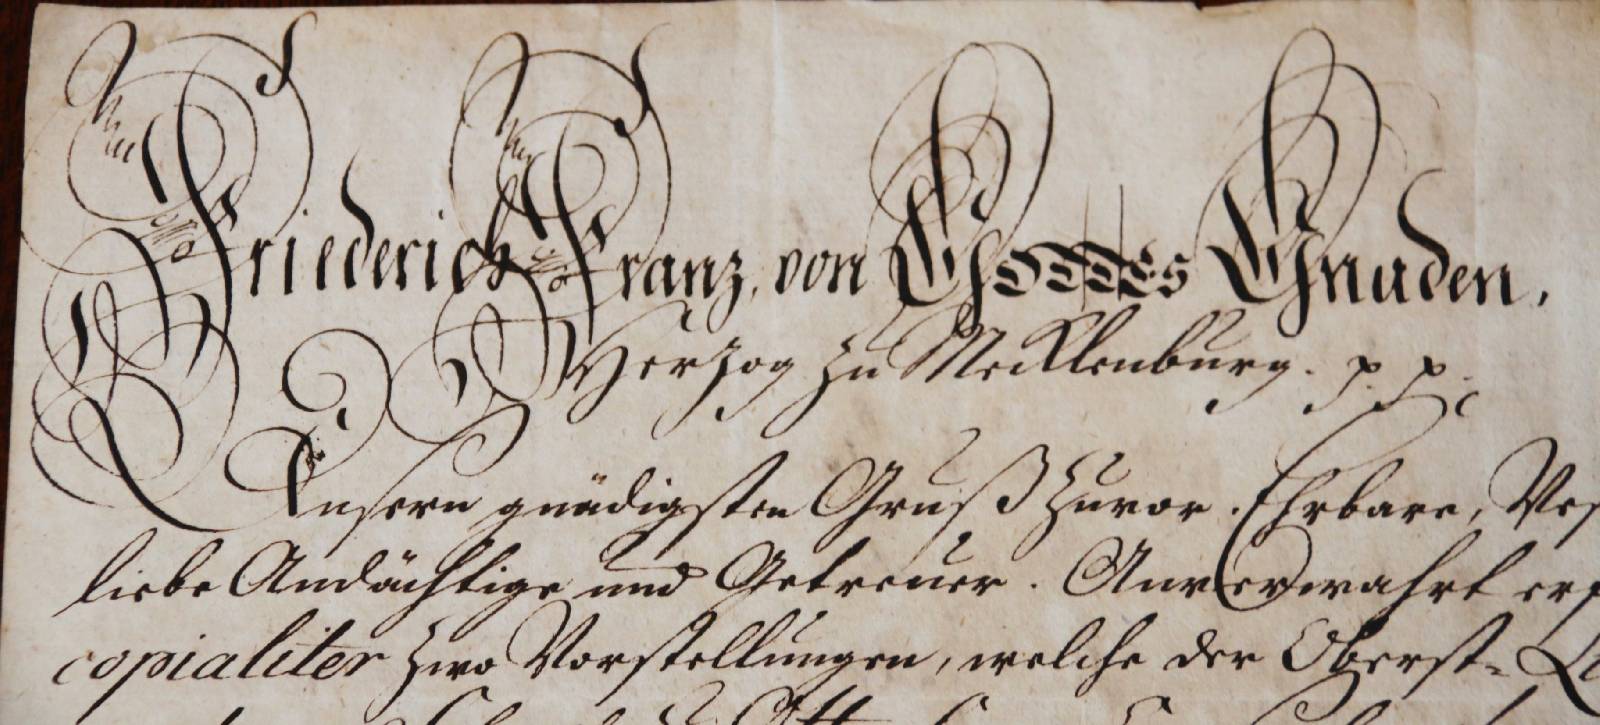 Friederich Franz, von Gottes Gnaden,
Herzog zu Mecklenburg. p. p.
Unsern gnädigsten Gruß zuvor. Ehrbare,
liebe Andächtige und Getreuer. Anverwahrt
copialiter zwo Vorstellungen, welche der Oberst-